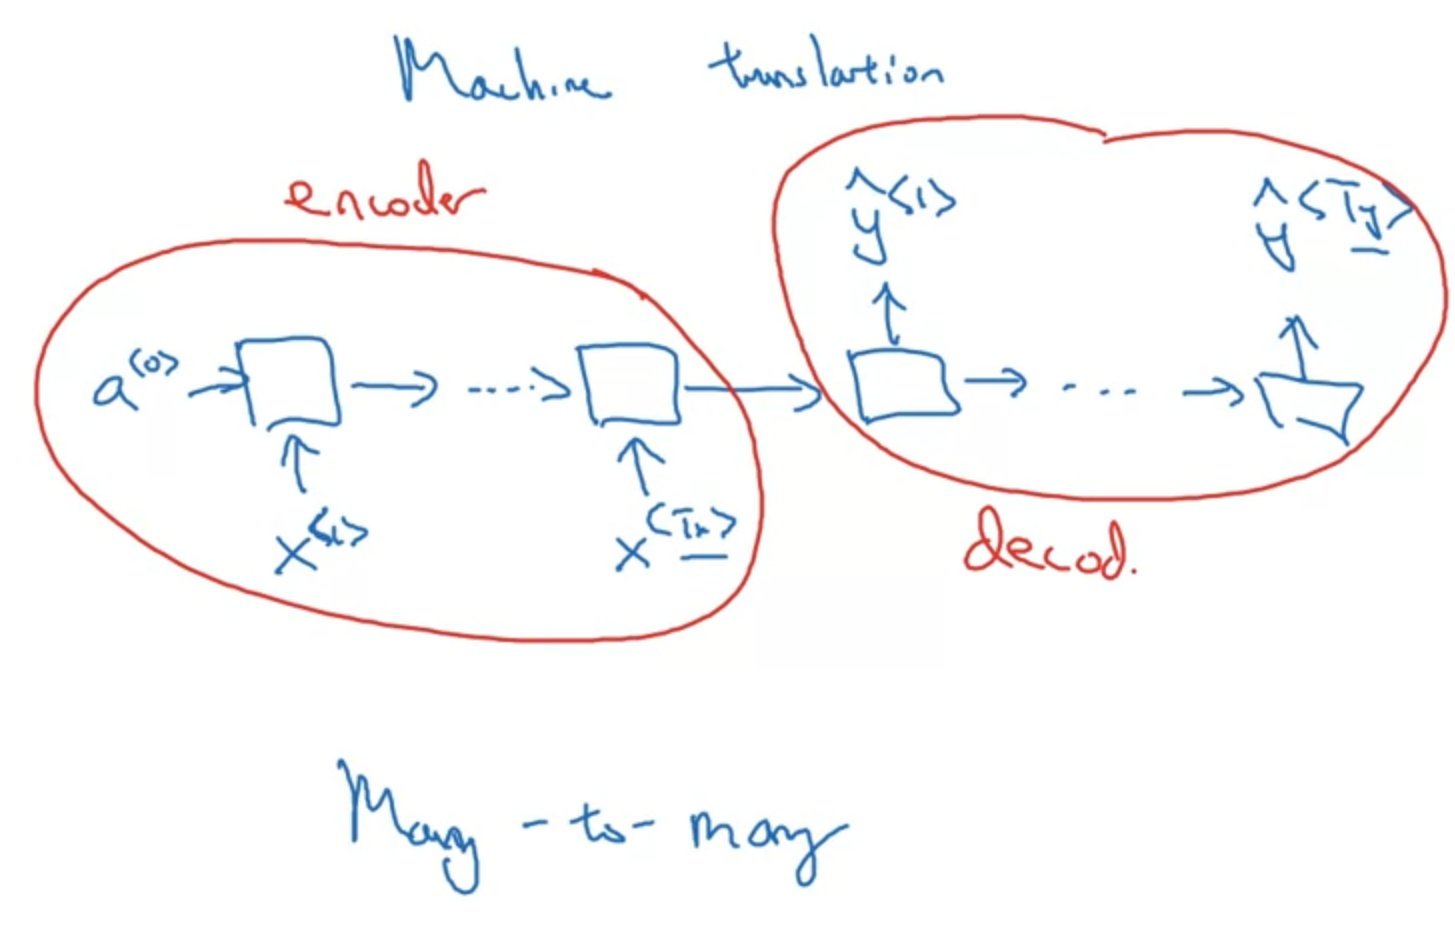 Machine translation
encoder
ŷ<1> ŷ<Ty>
a<0>
x<1> x<Tx>
decod.
Many-to-many